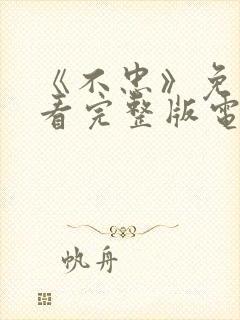 《不忠》免
看完整版電
帆舟